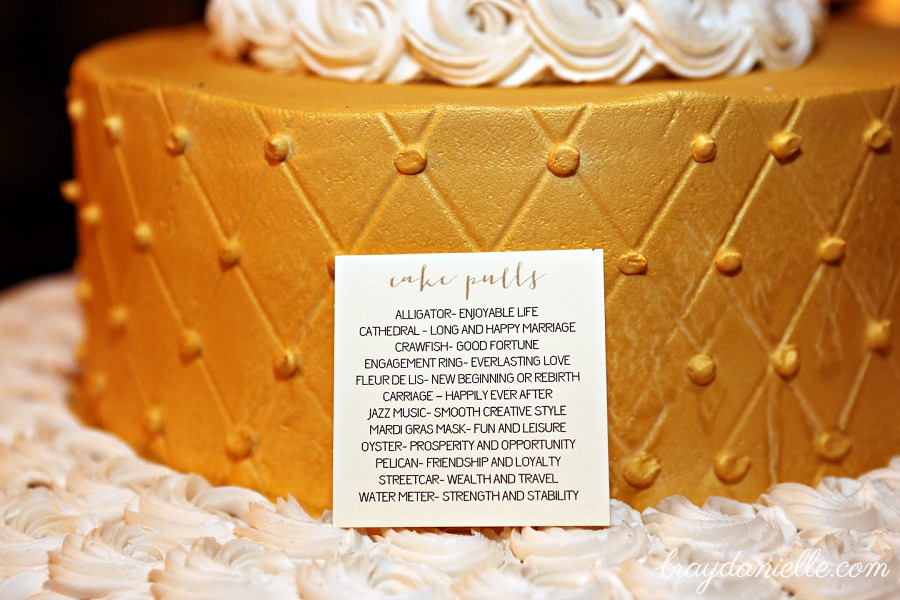 cake pulls
ALLIGATOR- ENJOYABLE LIFE
CATHEDRAL - LONG AND HAPPY MARRIAGE
CRAWFISH- GOOD FORTUNE
ENGAGEMENT RING- EVERLASTING LOVE
FLEUR DE LIS- NEW BEGINNING OR REBIRTH
CARRIAGE – HAPPILY EVER AFTER
JAZZ MUSIC- SMOOTH CREATIVE STYLE
MARDI GRAS MASK- FUN AND LEISURE
OYSTER- PROSPERITY AND OPPORTUNITY
PELICAN- FRIENDSHIP AND LOYALTY
STREETCAR- WEALTH AND TRAVEL
WATER METER- STRENGTH AND STABILITY
braydanielle.com